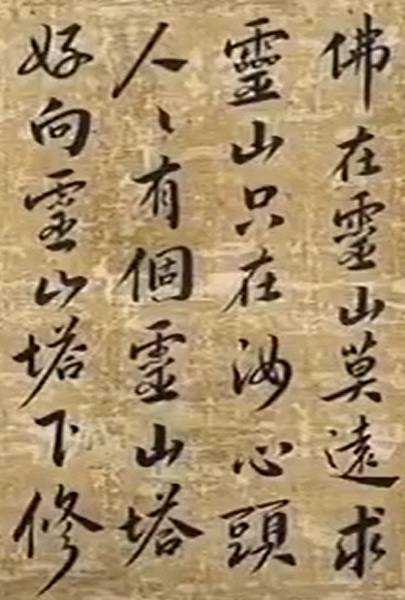 佛在靈山莫遠求
靈山只在汝心頭
人〻有個靈山塔
好向靈山塔下修